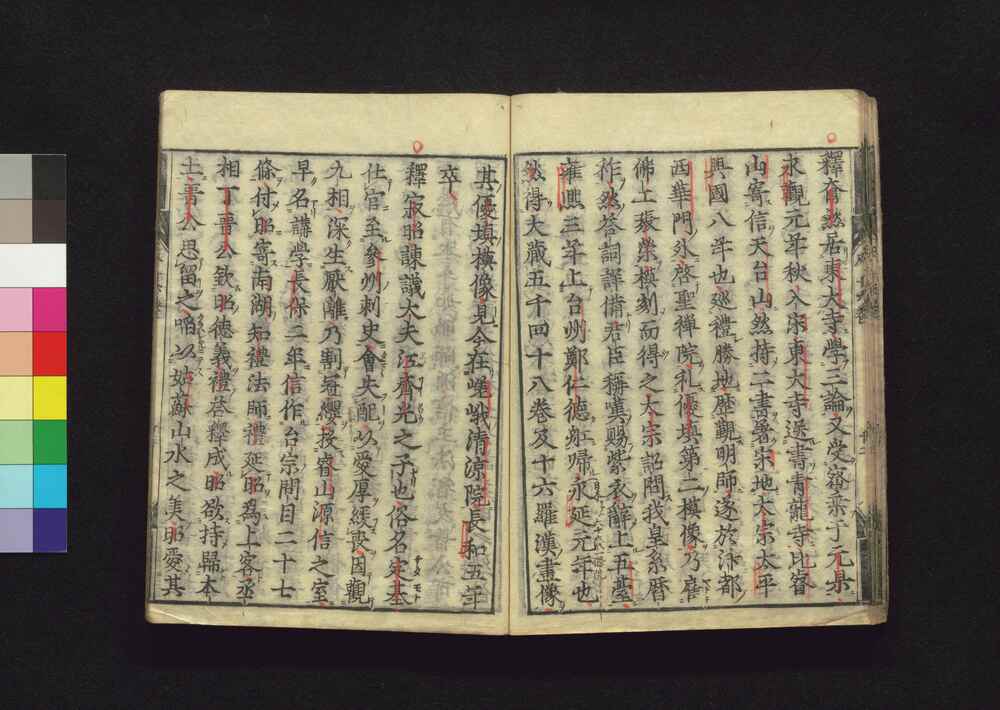 釋奝然居東大寺學三論又受密乘于元杲
永觀元年秋入宋東大寺送書青龍寺比睿
山寄信天台山然持二書暑宋地太宗太平
興國八年也巡禮勝地歷觀明師遂於汴都
西華門外啓聖禪院礼優填第二模像乃雇
佛工張榮模刻而得之太宗詔問我皇系曆
祚然荅詞詳備君臣稱嘆賜紫衣辭上五臺
雍熈三年上台州鄭仁德舩歸永延元年也
然得大藏五千四十八卷及十六羅漢畫像
其優填模像見今在嵯峨清凉院長和五年
卒
釋寂昭諫議大夫江齊光之子也俗名定基
仕官至參州刺史會失配以愛厚緩喪因觀
九相深生厭離乃割冠纓投睿山源信之室
早名講學長保二年信作台宗問目二十七
條付昭寄南湖知禮法師禮延昭爲上客丞
相丁晋公欽昭德義禮荅釋成昭欲持歸本
土晋公思留之啗以姑蘇山水之美昭愛其